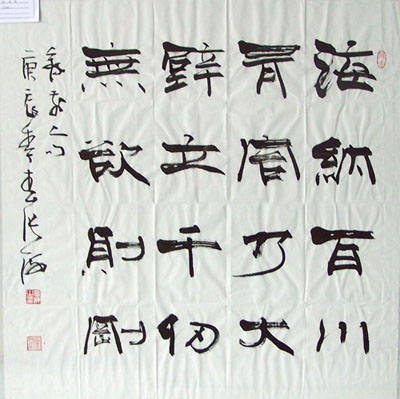 海納百川
有容乃大
壁立千仞
無欲則剛
庚辰